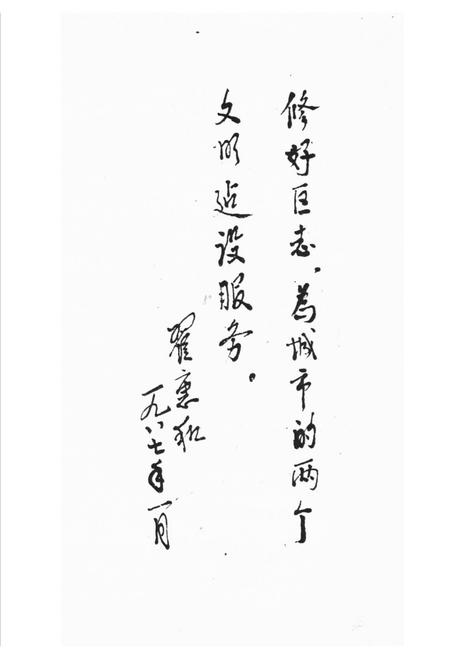 修好区志，为城市的两个
文明建设服务。
翟惠和
一九八七年一月